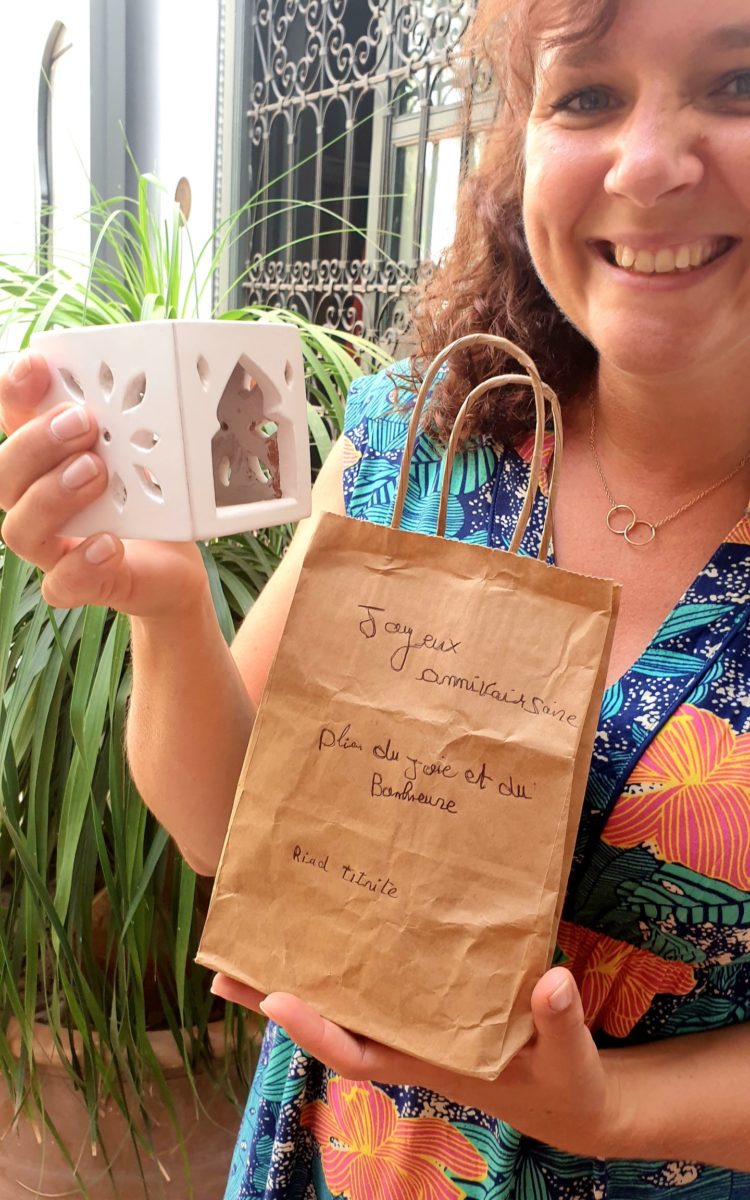 Joyeux
annivairsaire
plien du joie et du
Bonheure
Riad titrite